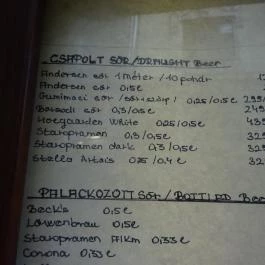 CSAPOLT SÖR/DRAUGHT Beer
Andersen sör 1 méter / 10 pohár
Andersen sör 0,5 l
0,25/0,5 l
Borsodi sör 0,3/0,5 l
Hoegaarden White 0,25/0,5 l
Staropramen 0,3/0,5 l
Staropramen dark 0,3/0,5 l
Stella Artois 0,25/0,4 l
PALACKOZOTT Sör / BOTTLED Bee
Beck's 0,5 l
Löwenbrau 0,5 l
Staropramen 0,33 l
Corona 0,33 l